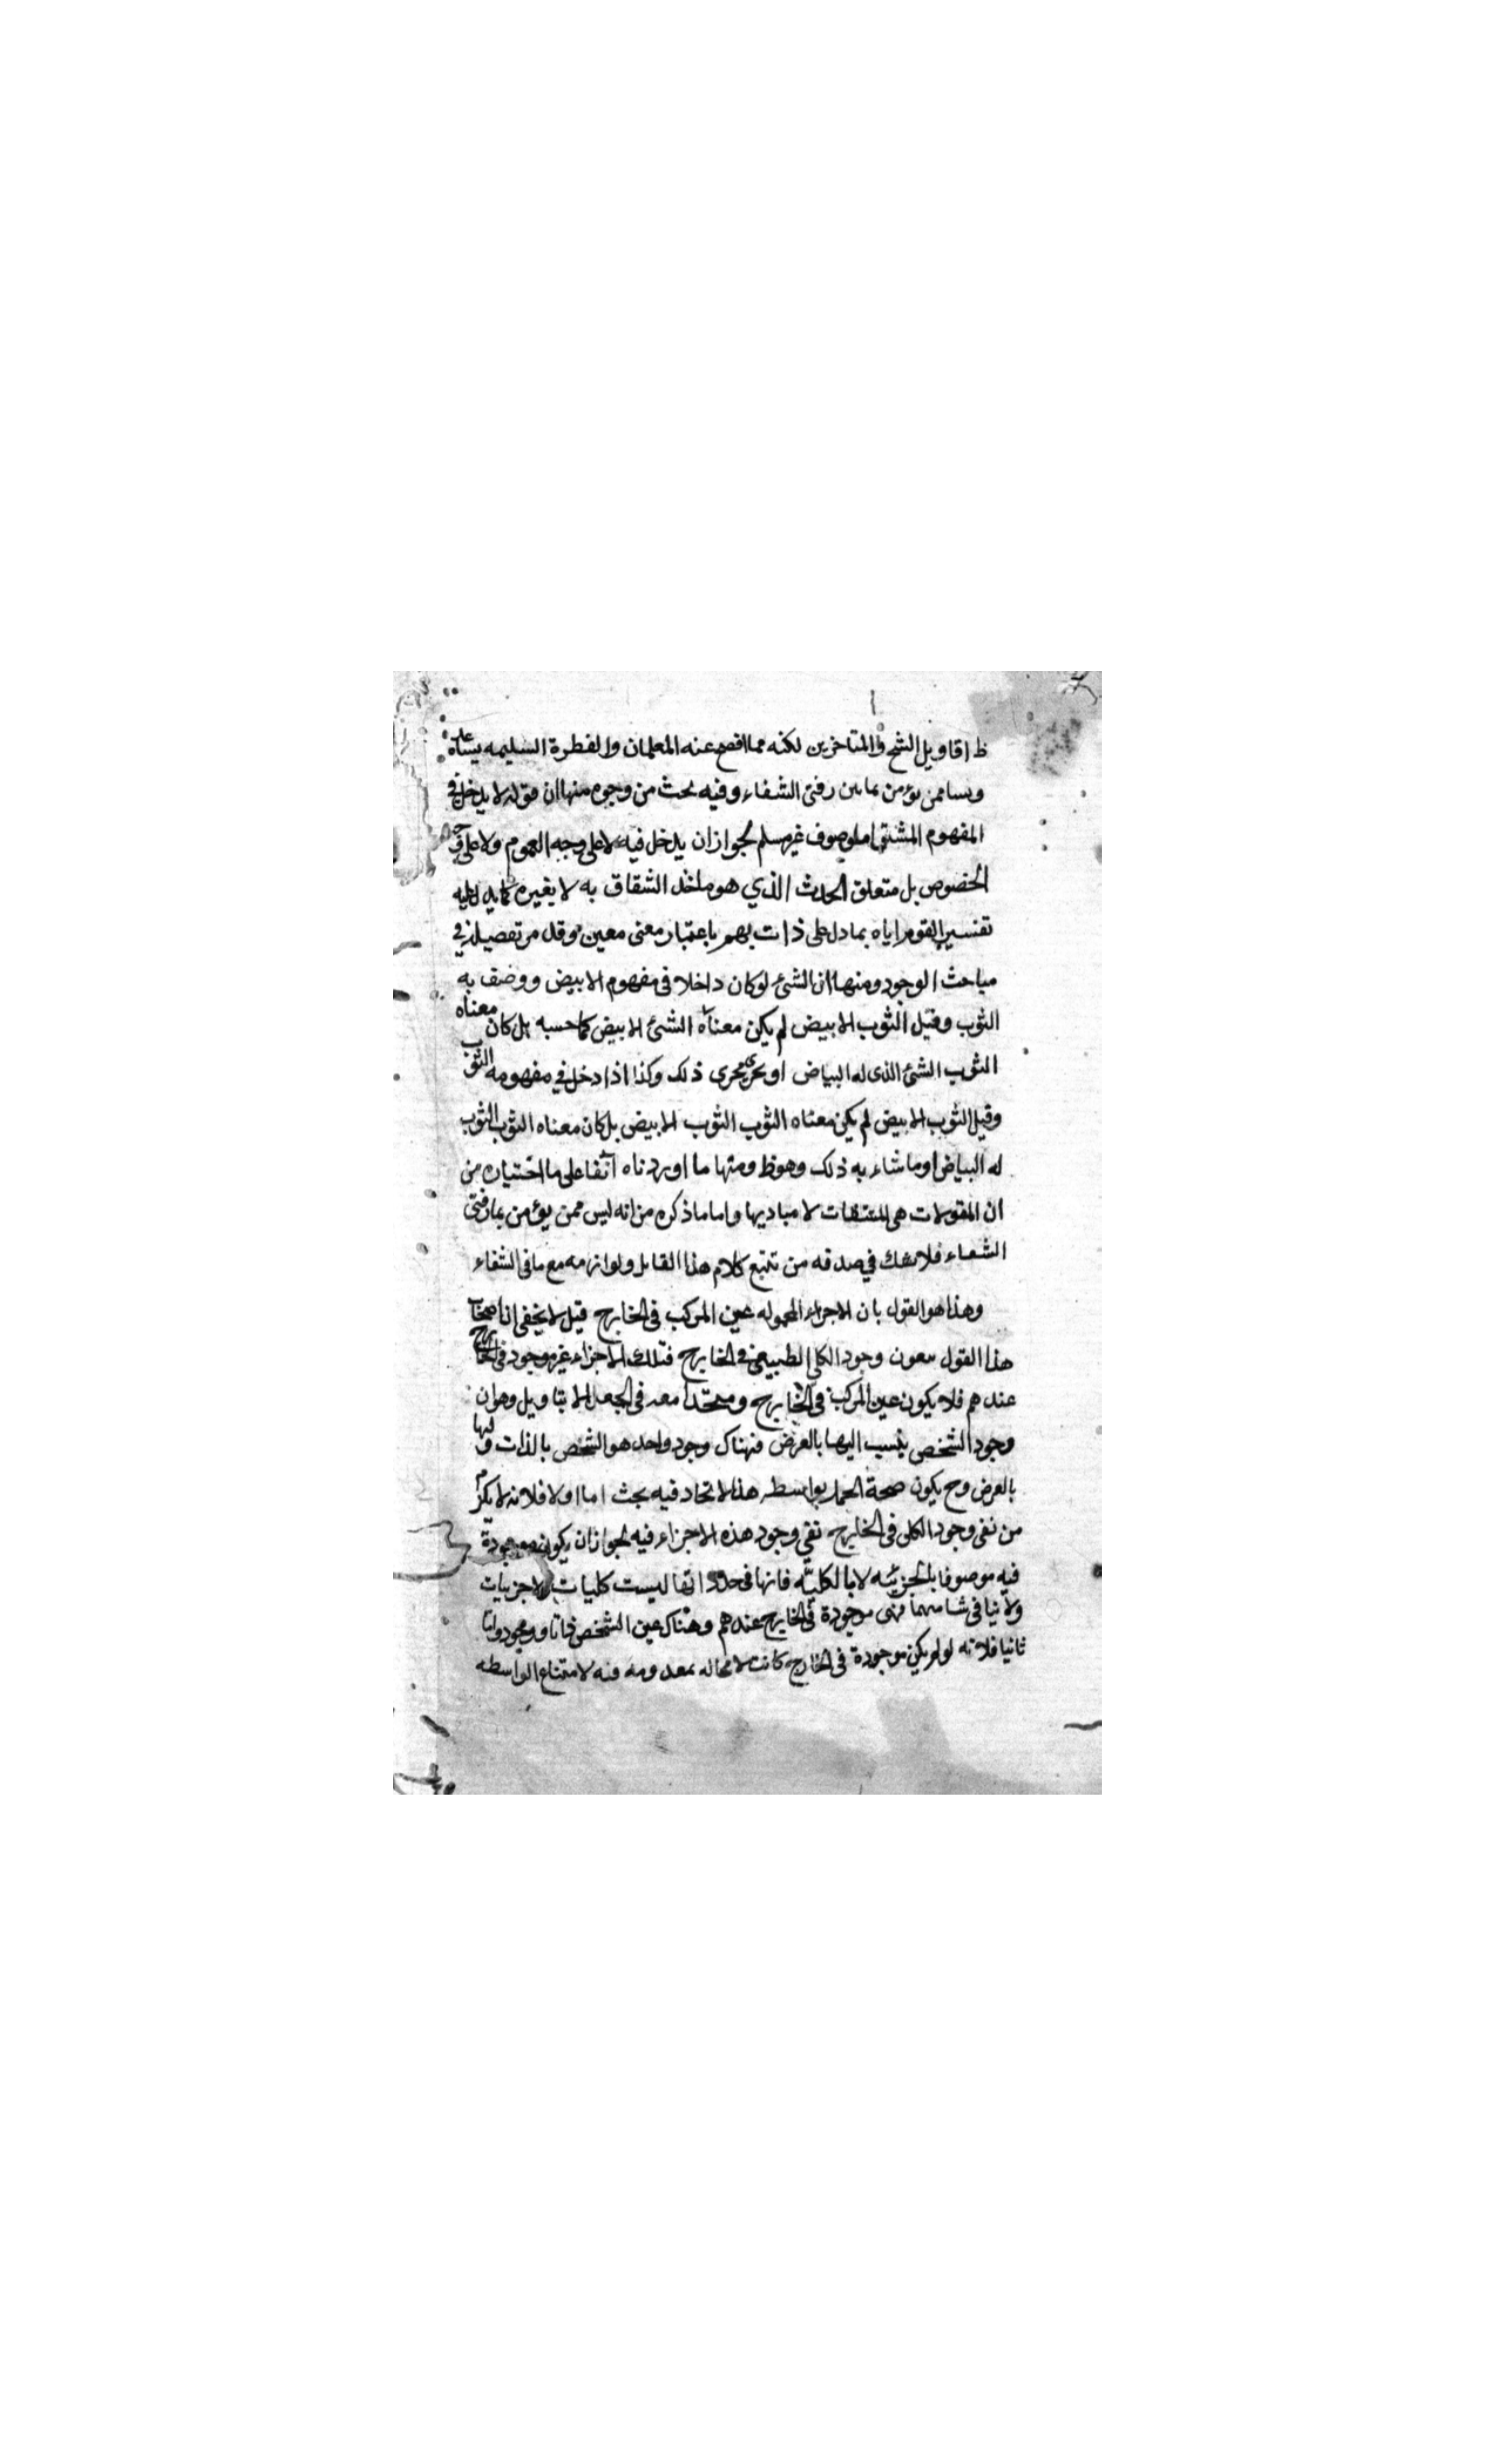 ظ اقاويل الشيخ والمتاخرين لكنه مما افصح عنه المعلمان والفطرة السليمه يساعده
ويسا ممن يؤمن بما بين رفتى الشفاء وفيه بحث من وجوه منها ان قوله لا يدخل فى
المفهوم المشتق املوصوف غير مسلم لجواز ان يدخل فيه لا على وجه العموم ولا على وجه
الخصوص بل متعلق الحدث الذي هو ماخذ الشقاق به لا يغيره كما يدل عليه
تفسير القوم اياه بما دل على ذات بهم باعتبار معنى معين وقد مر تفصيله في
مباحث الوجود ومنها ان الشئ لو كان داخلا فى مفهوم الابيض ووصف به
الثوب وقيل الثوب الابيض لم يكن معناه الشئ الابيض كما حسبه بل كان معناه
الثوب الشئ الذى له البياض او بحرى مجرى ذلك وكذا اذا دخل في مفهومه الثوب
وقيل الثوب الابيض لم يكن معناه الثوب الثوب الابيض بل كان معناه الثوب الثوب
له البياض او ما شاء به ذلك وهو ظ ومنها ما اوردناه آنفا على ما اختياره من
ان المقولات هى المشتقات لا مباديها واما ما ذكره من انه ليس ممن يؤمن بما رفتى
الشفاء فلا شك في صدقه من تتبع كلام هذا القايل ولوازمه مع ما فى الشفاء
وهذا هو القول بان الاجزاء المحموله عين المركب فى الخارج قيل لا يخفى ان اصحاب
هذا القول ينعون وجود الكلي الطبيعي في الخارج فتلك الاجزاء غير موجود فى الخارج
عندهم فلا يكون عين المركب فى الخارج ومتحدا معه فى الجعل الا بتاويل وهو ان
وجود الشخص ينسب اليها بالعرض فهناك وجود واحد هو الشخص بالذات ولها
بالعرض وح يكون صحة الحمل بواسطه هذا الاتحاد فيه بحث اما اولا فلانه لا يلزم
من نفى وجود الكلى فى الخارج نفي وجود هذه الاجزاء فيه لجواز ان يكون موجودة
فيه موصوفا بالجزئيه لا بالكليه فانها فى حدد اتفا ليست كليات ولا جزييات
ولا ينافى شا منهما فهى موجودة فى الخارج عندهم وهناك عين الشخص ذاتا ووجودا واما
ثانيا فلانه لو لم يكن موجودة فى الخارج كانت لا محاله معدومه فيه لامتناع الواسطه